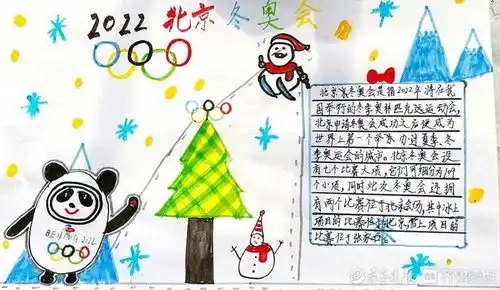 2022 北京冬奥会
北京冬奥会是指2022年将在我
国举行的冬季奥林匹克运动会,
北京申请冬奥会成功之后便成为
世界上第一个举办过夏季、冬
季奥运会的城市。北京冬奥会设
有七个比赛大项,它们可细分为109
个小项,同时此次冬奥会还拥
有两个比赛
项目的比赛
比赛
BEIJING 2022